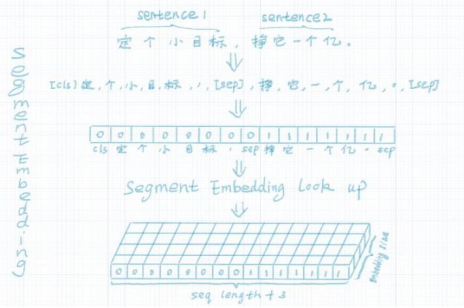 Segment Embedding
sentence1 sentence2
定个小目标，挣它一个亿。
[cls]定,个,小,目,标,,,[sep],挣,它,一,个,亿,。,[sep]
0 0 0 0 0 0 0 0 1 1 1 1 1 1 1
cls 定 个 小 目 标 , sep 挣 它 一 个 亿 。 sep
Segment Embedding Look up
0 0 0 0 0 0 0 0 1 1 1 1 1 1 1
embedding size
seq length + 3